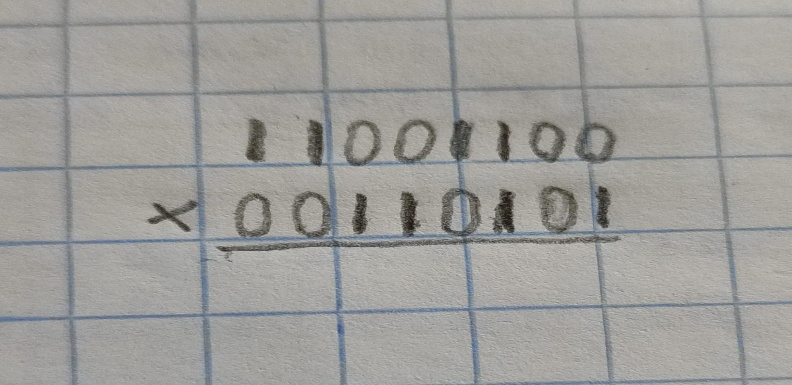 11001100
× 00110101